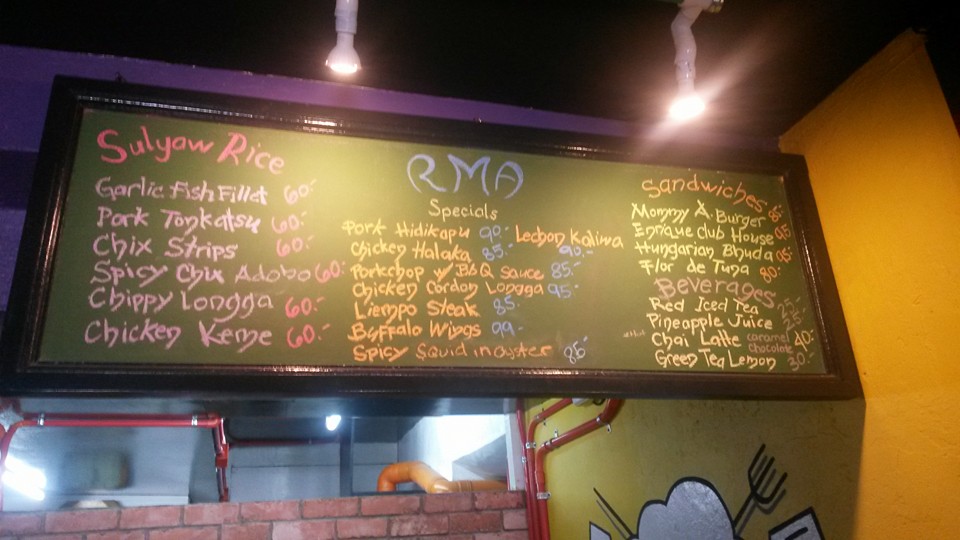 Sulyaw Rice
Garlic Fish Fillet 60.-
Pork Tonkatsu 60.-
Chix Strips 60.-
Spicy Chix Adobo 60.-
Chippy Longga 60.-
Chicken Keme 60.-
RMA
Specials
Pork Hidikapu 90.-
Chicken Halaka 85.-
Porkchop w/ BBQ sauce 85.-
Chicken Cordon Longga 95.-
Liempo Steak 85.-
Buffalo Wings 99.-
Spicy Squid in oyster
Lechon Kaliwa
90.-
Sandwiches
Mommy A. Burger
Enrique Club House
Hungarian Bhuda
Flor de Tuna 80.-
Beverages
Red Iced Tea
Pineapple Juice
Chai Latte caramel chocolate 40.-
Green Tea Lemon 30.-